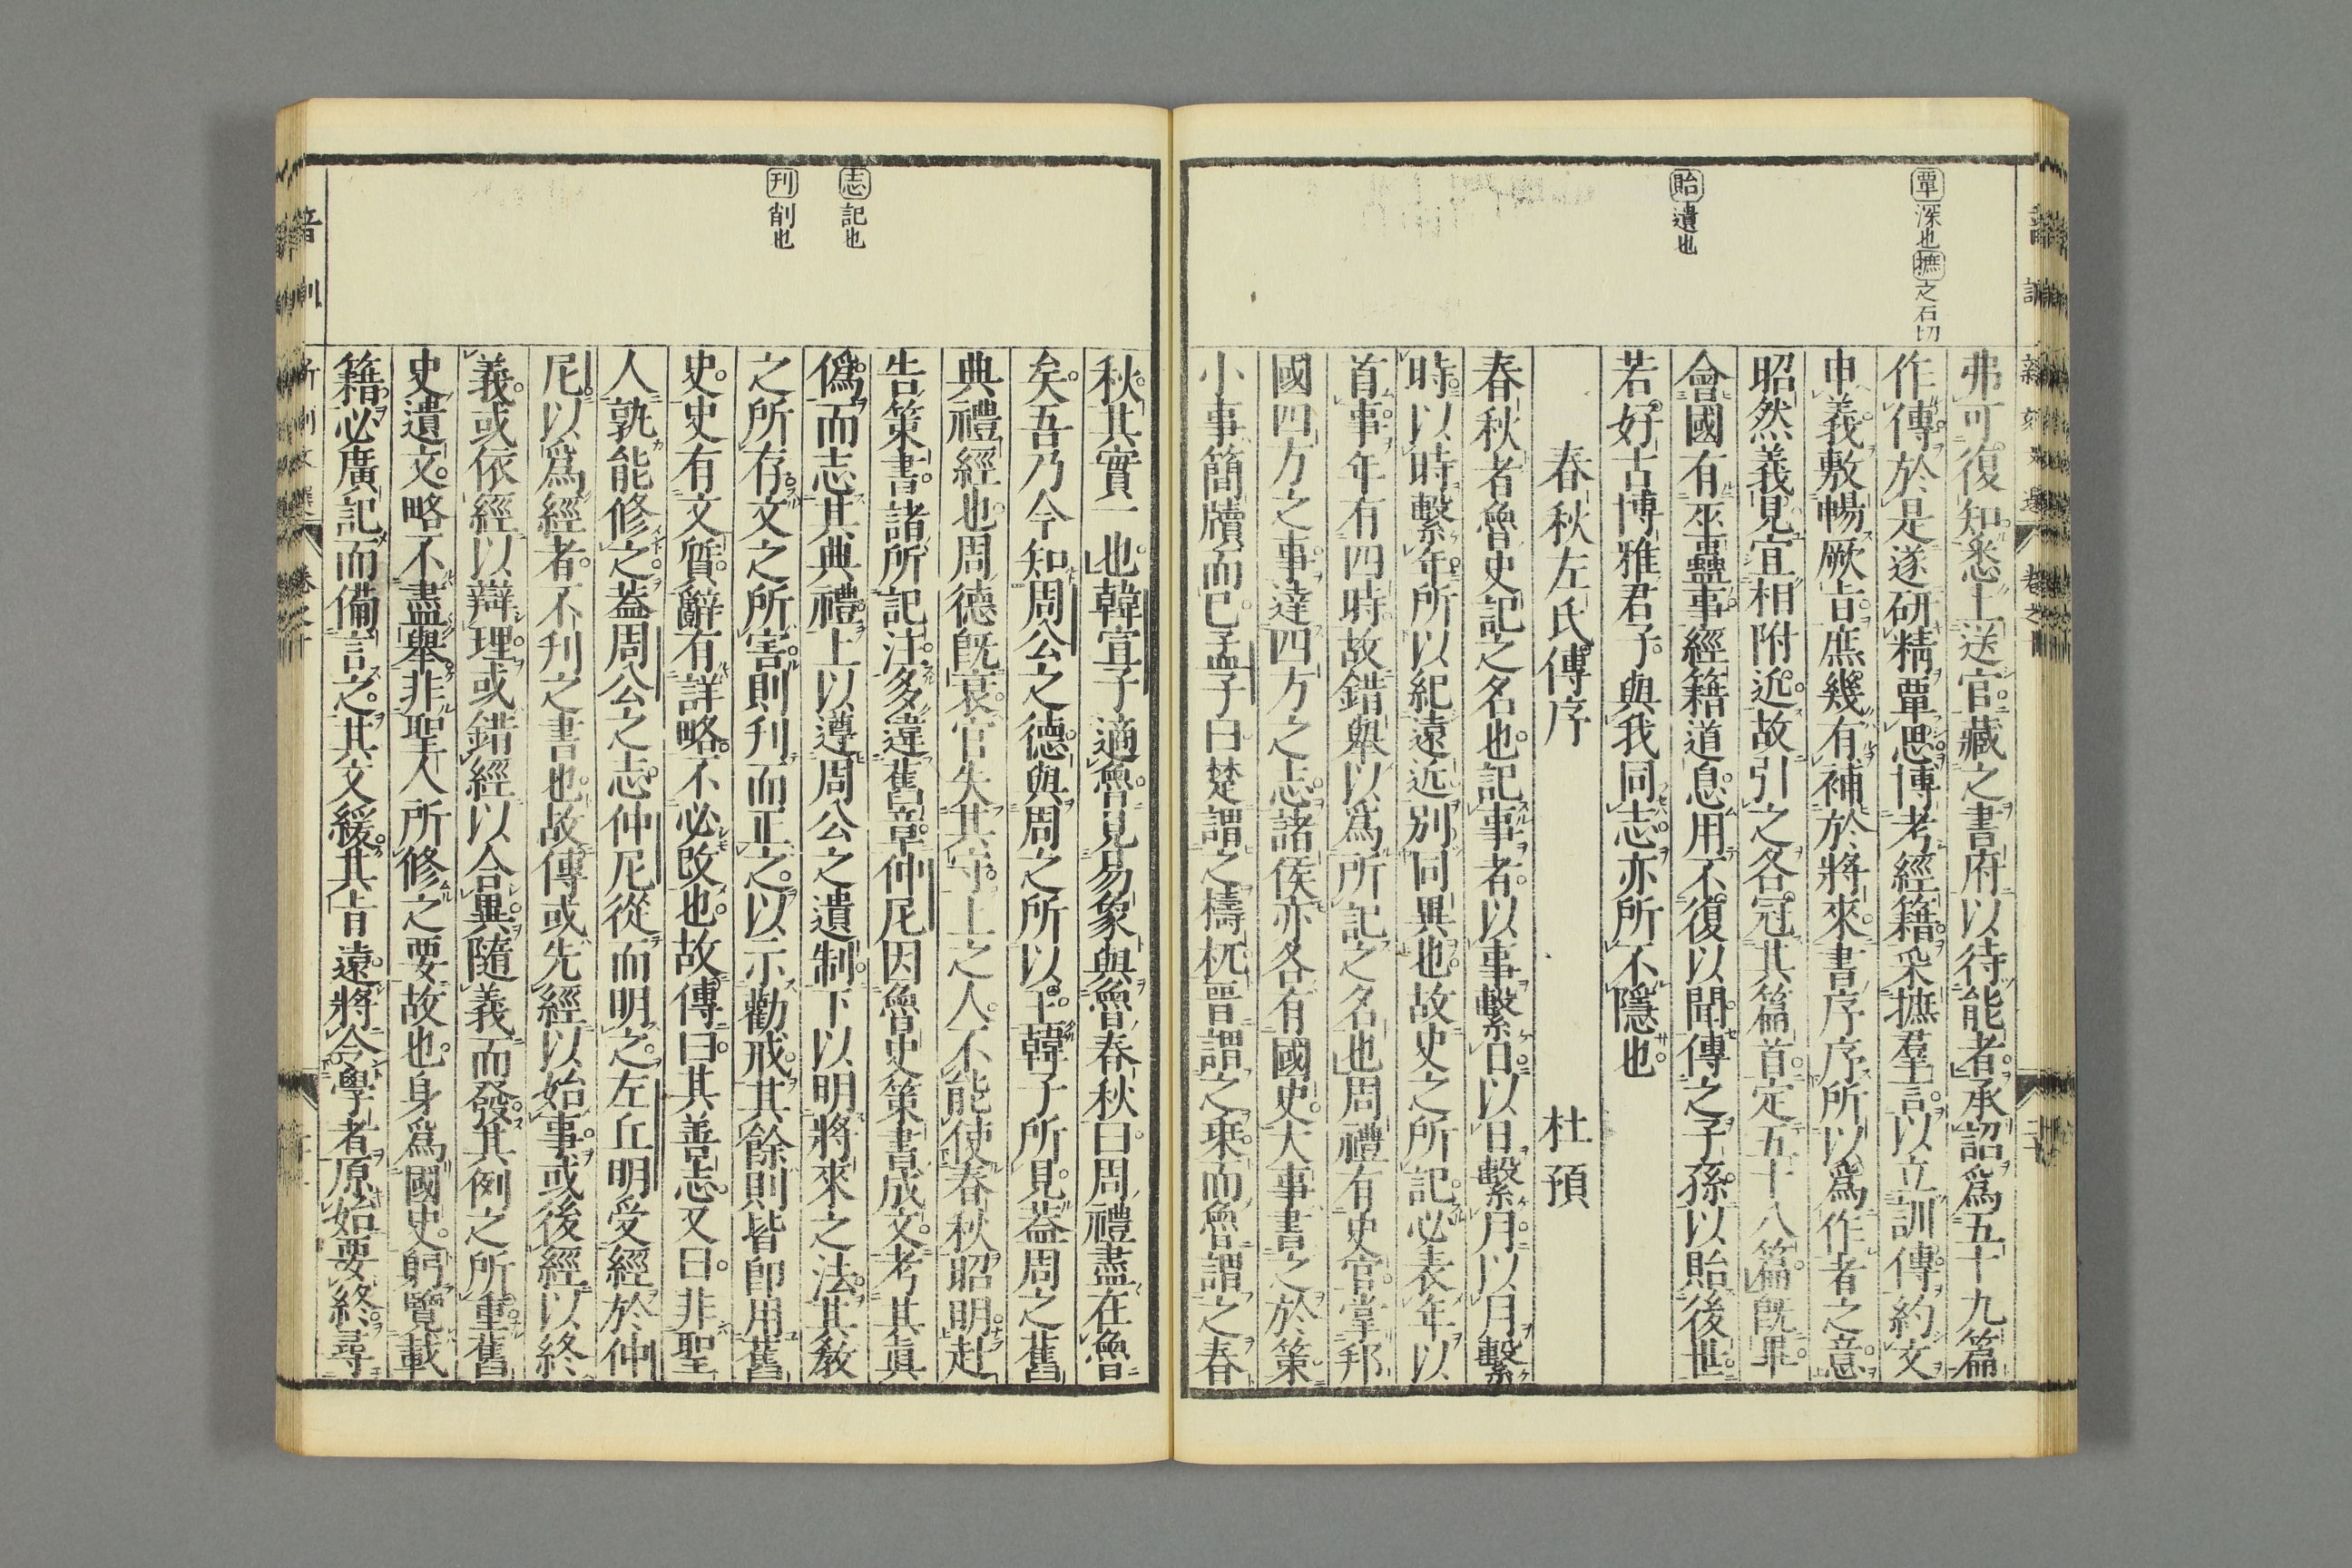 覃深也摭之石切
貽遺也
弗可復知悉上送官藏之書府以待能者承詔爲五十九篇
作傳於是遂研精覃思博考經籍采摭羣言以立訓傳約文
申義敷暢厥旨庶幾有補於將來書序序所以爲作者之意
昭然義見宜相附近故引之各冠其篇首定五十八篇既畢
會國有巫蠱事經籍道息用不復以聞傳之子孫以貽後世
若好古博雅君子與我同志亦所不隱也
春秋左氏傳序 杜預
春秋者魯史記之名也記事者以事繫日以日繫月以月繫
時以時繫年所以紀遠近別同異也故史之所記必表年以
首事年有四時故錯舉以爲所記之名也周禮有史官掌邦
國四方之事達四方之志諸侯亦各有國史大事書之於策
小事簡牘而已孟子曰楚謂之檮杌晉謂之乗而魯謂之春
志記也
刊削也
秋其實一也韓宣子適魯見易象與魯春秋曰周禮盡在魯
矣吾乃今知周公之德與周之所以王韓子所見葢周之舊
典禮經也周德既衰官失其守上之人不能使春秋昭明赴
告策書諸所記注多違舊章仲尼因魯史策書成文考其眞
僞而志其典禮上以遵周公之遺制下以明將來之法其教
之所存文之所害則刊而正之以示勸戒其餘則皆即用舊
史史有文質辭有詳略不必改也故傳曰其善志又曰非聖
人孰能修之葢周公之志仲尼從而明之左丘明受經於仲
尼以爲經者不刊之書也故傳或先經以始事或後經以終
義或依經以辯理或錯經以合異隨義而發其例之所重舊
史遺文略不盡舉非聖人所修之要故也身爲國史躬覽載
籍必廣記而備言之其文緩其旨遠將令學者原始要終尋